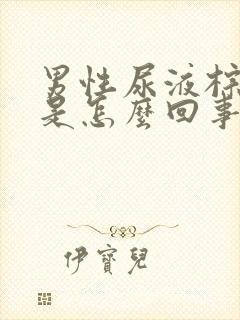 男性尿液棕
是怎麼回事
伊寶兒